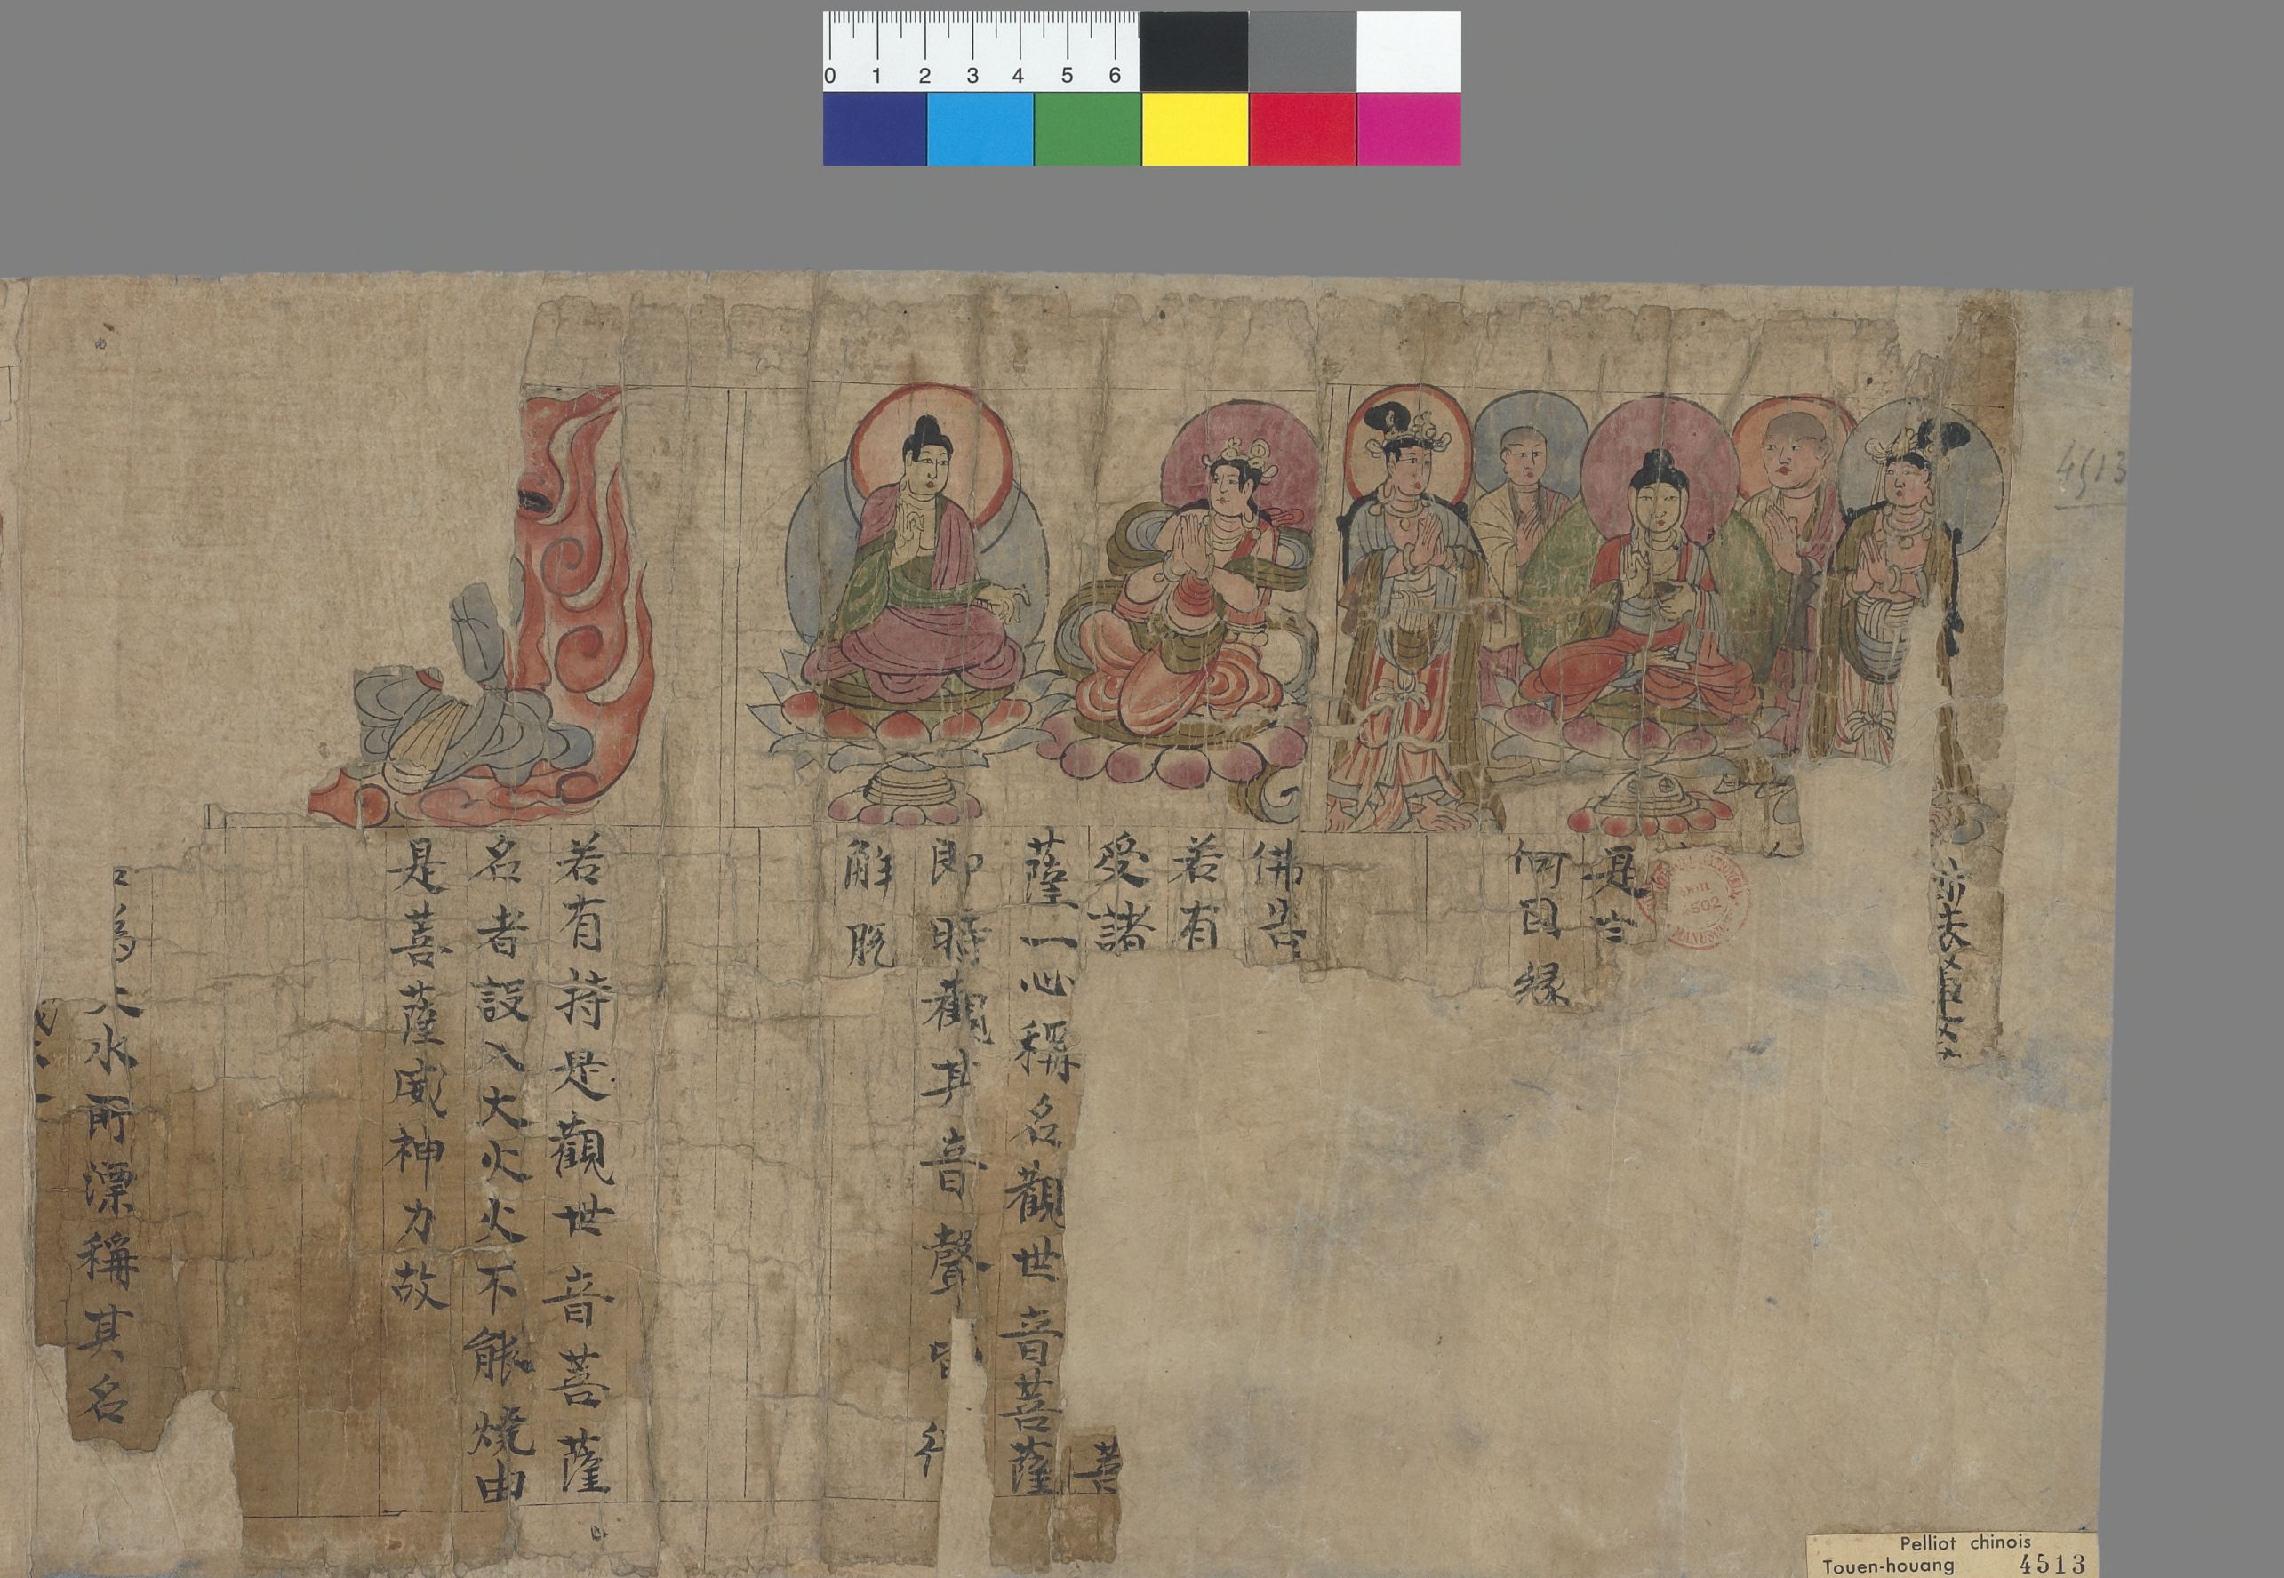 0 1 2 3 4 5 6
4513
何因緣
佛告
若有
受諸 菩
薩一心稱名觀世音菩薩
即時觀其音聲皆
解脫
若有持是觀世音菩薩
名者設入大火火不能燒由
是菩薩威神力故
為大水所漂稱其名
Pelliot chinois
Touen-houang 4513